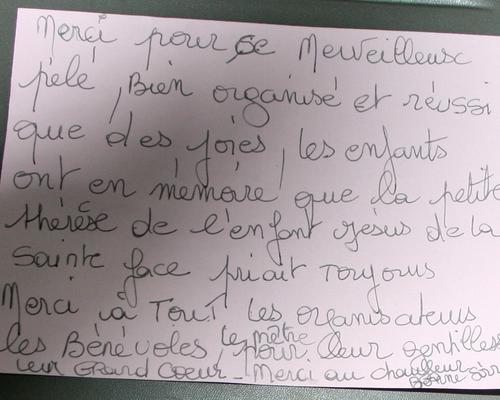 Merci pour ce Merveilleuse
pélé, Bien organisé et réussi
que des joies, les enfants
ont en mémoire que la petite
thérèse de l'enfant Jésus de la
Sainte face priait Toujours
Merci à Tout les organisateurs
les Bénévoles, le mètre pour leur gentilles
leur GRAND COEUR - Merci au chauffeur
Bonne